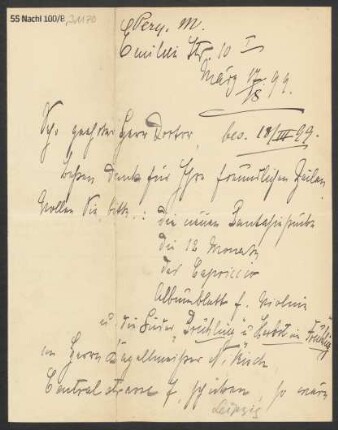 55 Nachl 100/B, 31170
Berg. M.
Emilie Str. 10 I
März 17/18. 99.
Sehr geehrter Herr Doctor, bes. 18/III 99.
besten Dank für Ihre freundlichen Zeilen
Wollen Sie, bitte: die neuen Fantasiestücke
die 12 Monate
das Capriccio
Albumblatt f. Violine
u. die Lieder, Frühling u. Herbst im
an Herrn Kapellmeister
Centralstrasse 7, schicken, so wäre
Leipzig